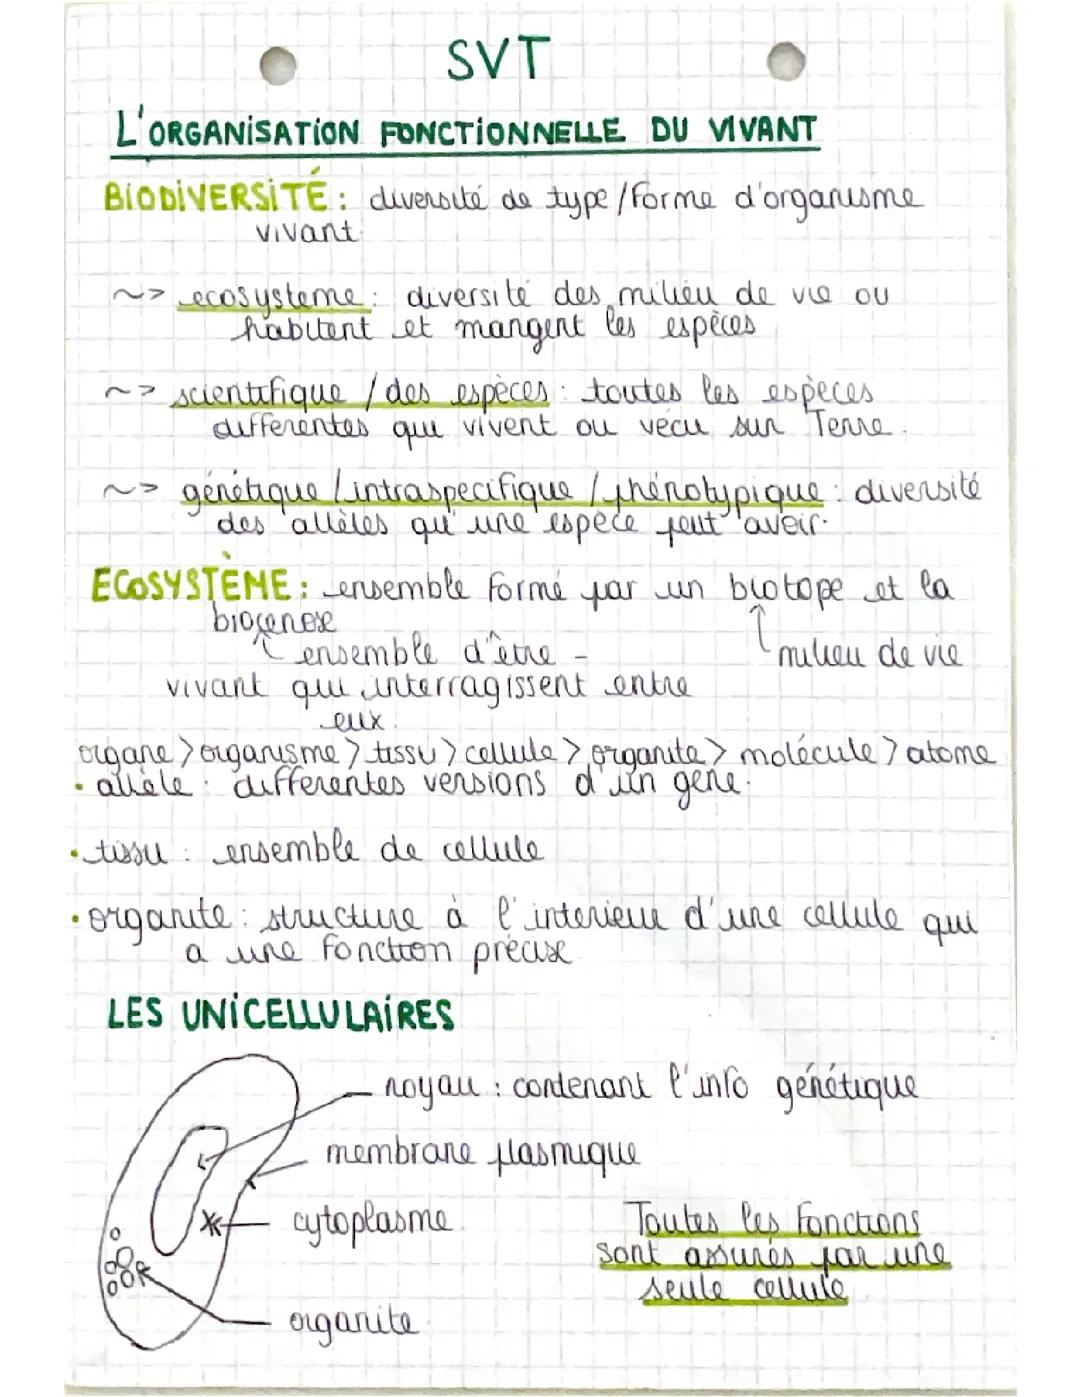 SVT
L'ORGANISATION FONCTIONNELLE DU VIVANT
BIODIVERSITÉ : diversité de type/forme d'organisme
vivant
~> ecosysteme : diversité des milieu de vie ou
habitent et mangent les espèces
~> scientifique / des espèces : toutes les espèces
differentes qui vivent ou vécu sur Terre.
~> génétique / intraspecifique / phénotypique : diversité
des allèles qu'une espèce peut avoir.
ECOSYSTÈME : ensemble formé par un biotope et la
biocenose
ensemble d'être - milieu de vie
vivant qui interragissent entre
eux.
organe > organisme > tissu > cellule > organite > molécule > atome
• allèle : differentes versions d'un gène.
• tissu : ensemble de cellule
• organite : structure à l'interieur d'une cellule qui
a une fonction précise
LES UNICELLULAIRES
noyau : contenant l'info génétique
membrane plasmique
cytoplasme
Toutes les fonctions
sont assurés par une
seule cellule
organite